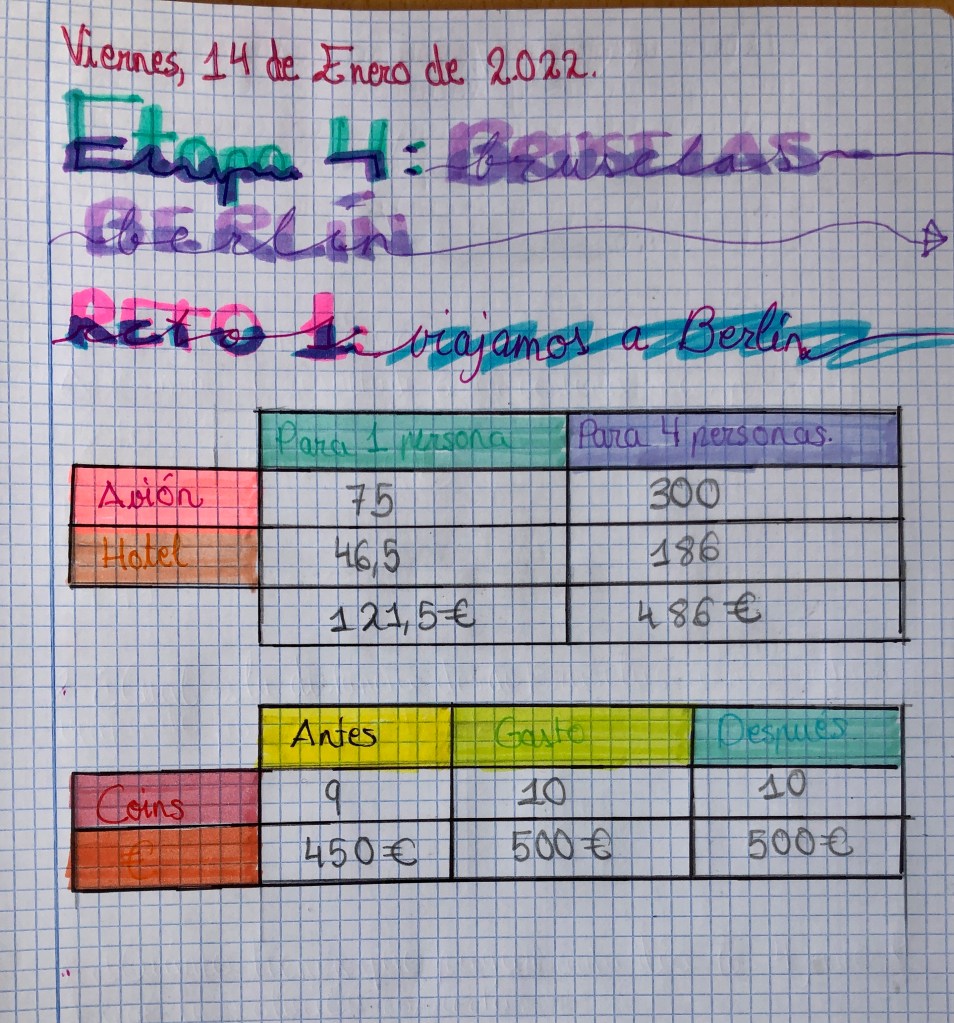 Viernes, 14 de Enero de 2022.
Etapa 4: Bruselas
Berlín
Reto 1: viajamos a Berlín.
Para 1 persona Para 4 personas.
Avión 75 300
Hotel 46,5 186
121,5€ 486€
Antes Gasto Después
Coins 9 10 10
€ 450€ 500€ 500€